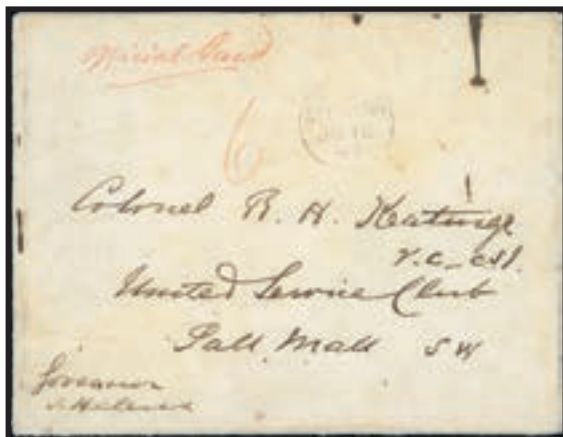 Official Paid
6
Colonel R. H. Keatinge
V.C. CSI.
United Service Club
Pall Mall SW
Governor
St Helena